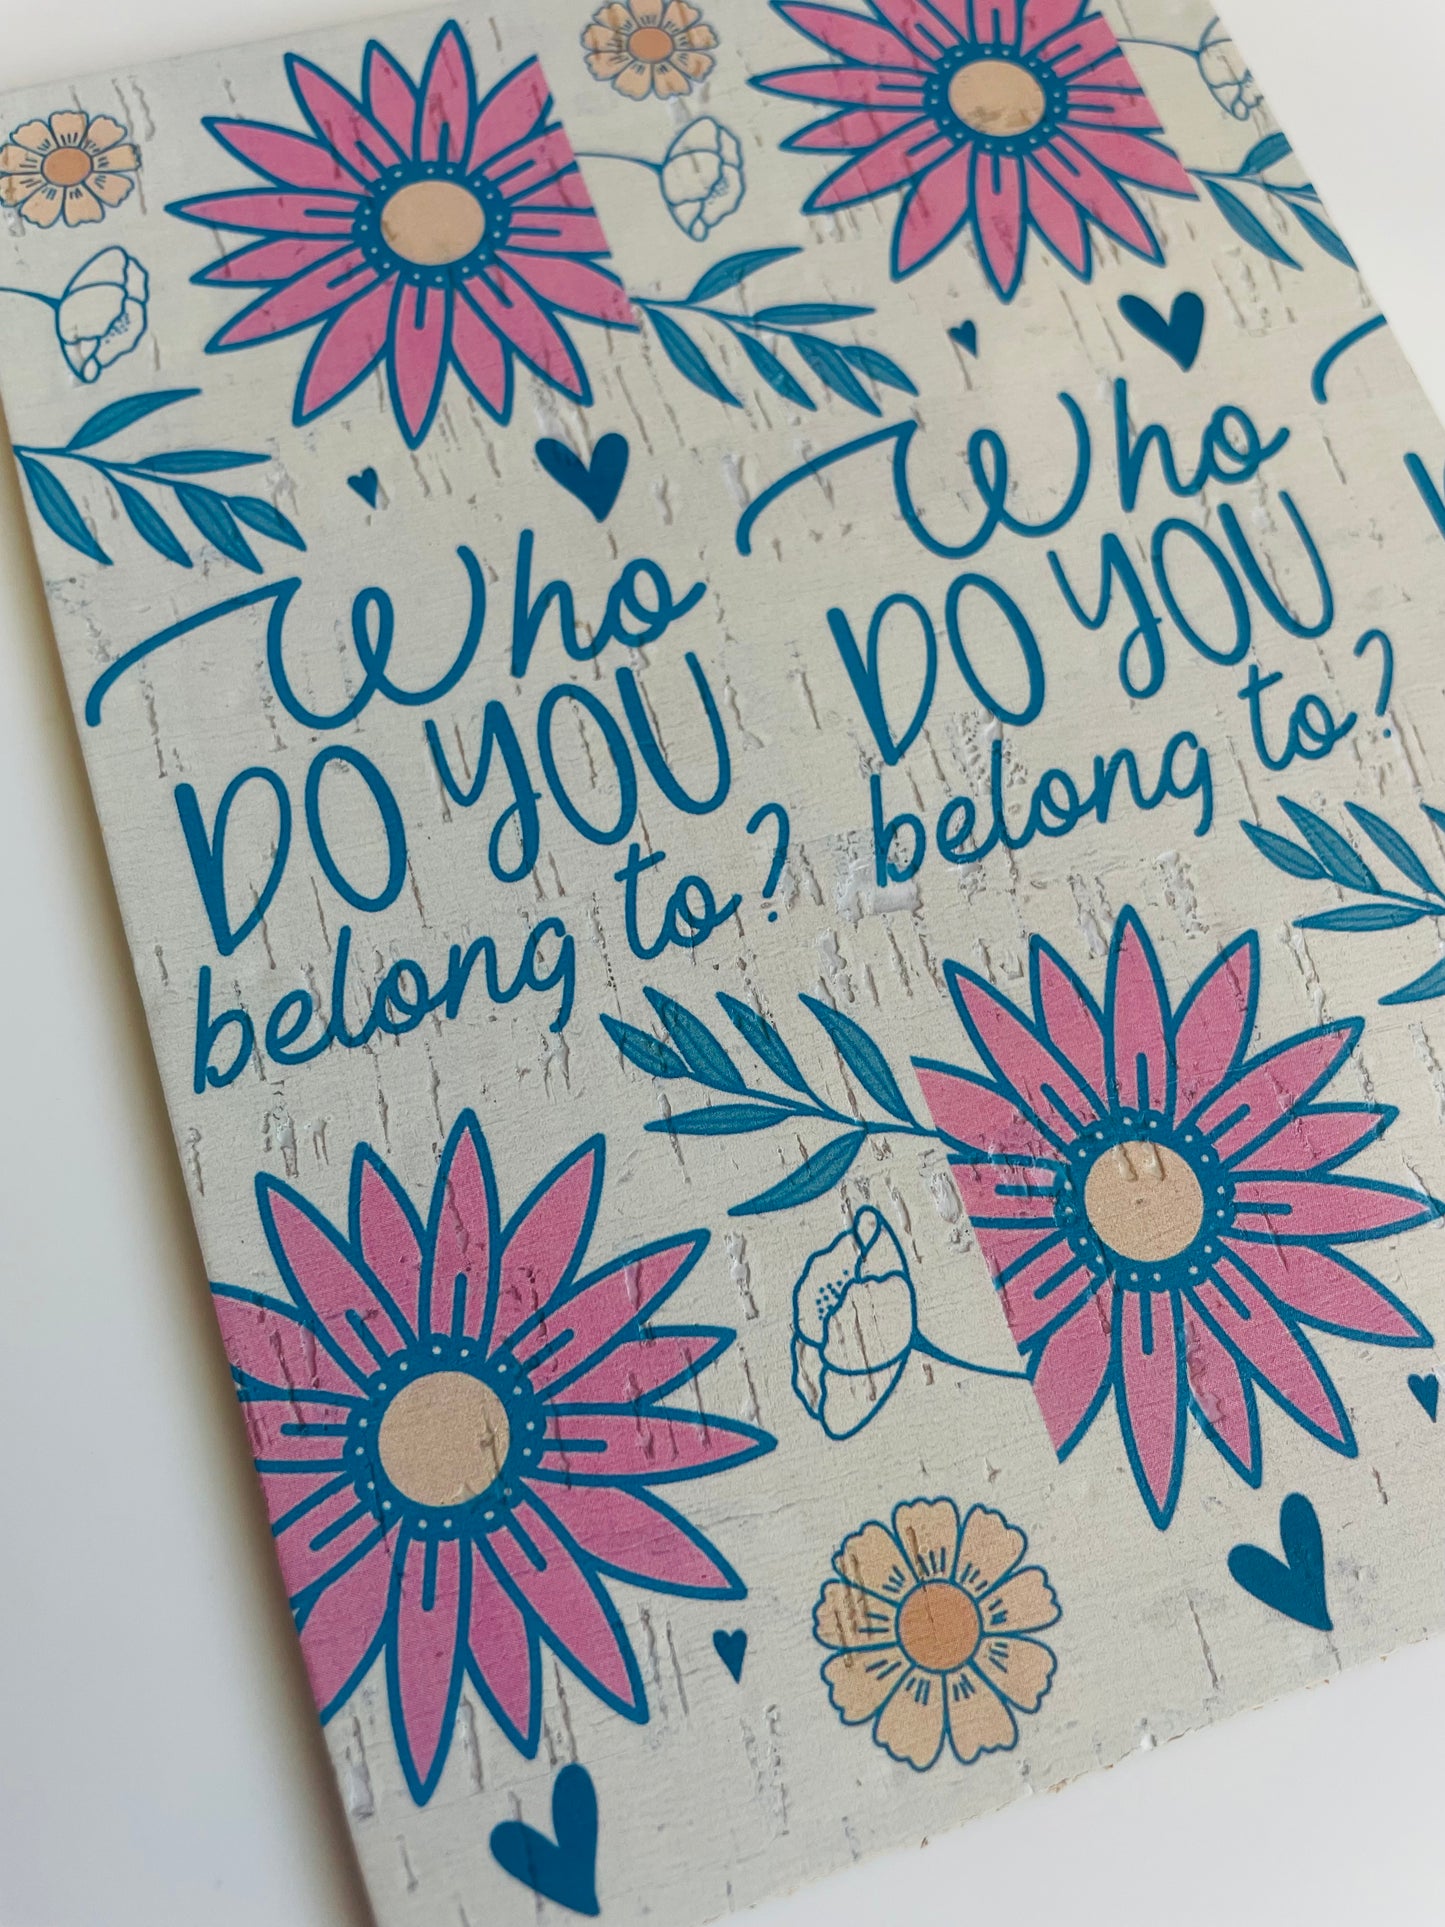 Who
DO YOU
belong to?
Who
DO YOU
belong to?